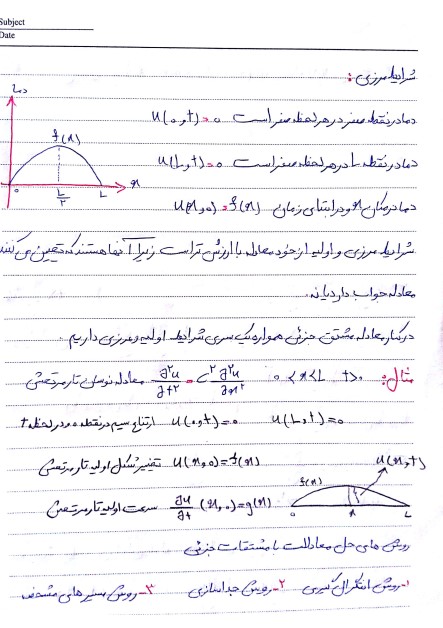 Subject
Date
شرایط مرزی:
دما
f(x)
0
L/2
L
x
دما در نقطه صفر در هر لحظه صفر است u(0,t)=0
دما در نقطه L در هر لحظه صفر است u(L,t)=0
دما در مکان x و در ابتدای زمان u(x,0)=f(x)
شرایط مرزی و اولیه از خود معادله با ارزش تر است زیرا آنها هستند که تعیین می کنند
معادله جواب دارد یا نه.
در کنار معادله مشتق جزئی همواره یک سری شرایط اولیه و مرزی داریم.
مثال: t>0 0<x<L ∂²u/∂t² = c² ∂²u/∂x² معادله نوسان تار مرتعش
u(L,t)=0 u(0,t)=0 ارتفاع سیم در نقطه 0 و در لحظه t
u(x,0)=f(x) تغییر شکل اولیه تار مرتعش
∂u/∂t (x,0)=g(x) سرعت اولیه تار مرتعش
u(x,t)
f(x)
0
x
L
روش های حل معادلات با مشتقات جزئی
۱-روش انتگرال گیری ۲-روش جداسازی ۳-روش مسیرهای مشخصه